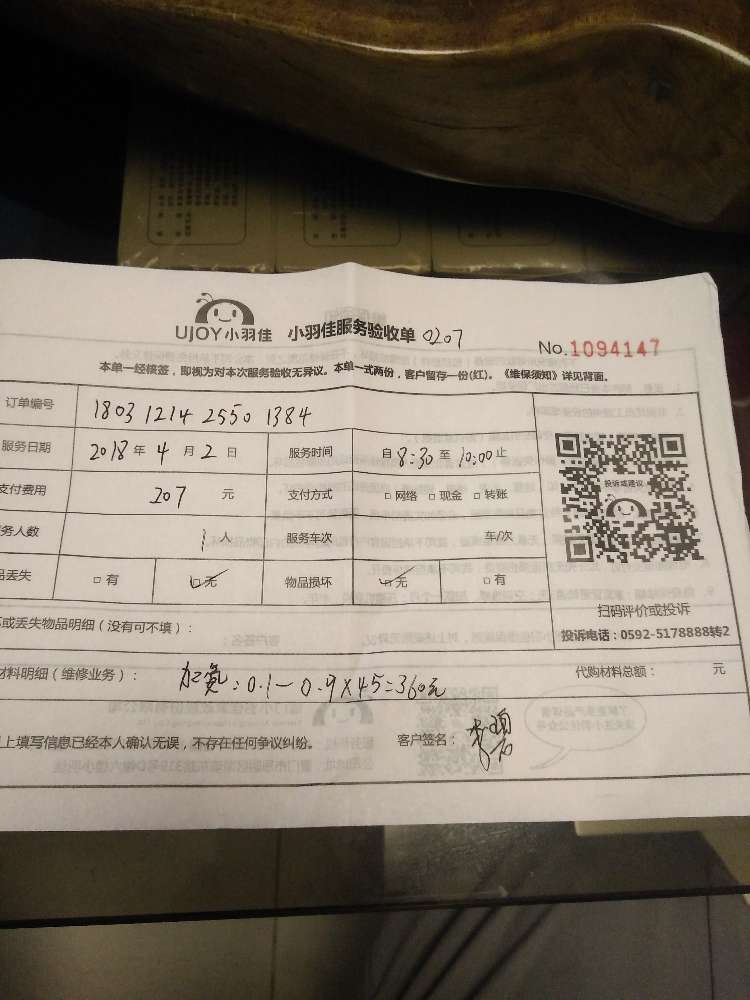 UJOY小羽佳 小羽佳服务验收单 0207
No.1094147
本单一经核签，即视为对本次服务验收无异议。本单一式两份，客户留存一份(红)。《维保须知》详见背面。
订单编号 1803 1214 2550 1384
服务日期 2018年4月2日 服务时间 自8:30至10:00止
支付费用 207 元 支付方式 □网络 □现金 □转账
务人数 1人 服务车次 车/次
品丢失 □有 □无 物品损坏 □无 □有
投诉或建议
扫码评价或投诉
投诉电话：0592-5178888转2
坏或丢失物品明细（没有可不填）：
材料明细（维修业务）： 加氟：0.1—0.9×45=360元 代购材料总额： 元
上填写信息已经本人确认无误，不存在任何争议纠纷。 客户签名：